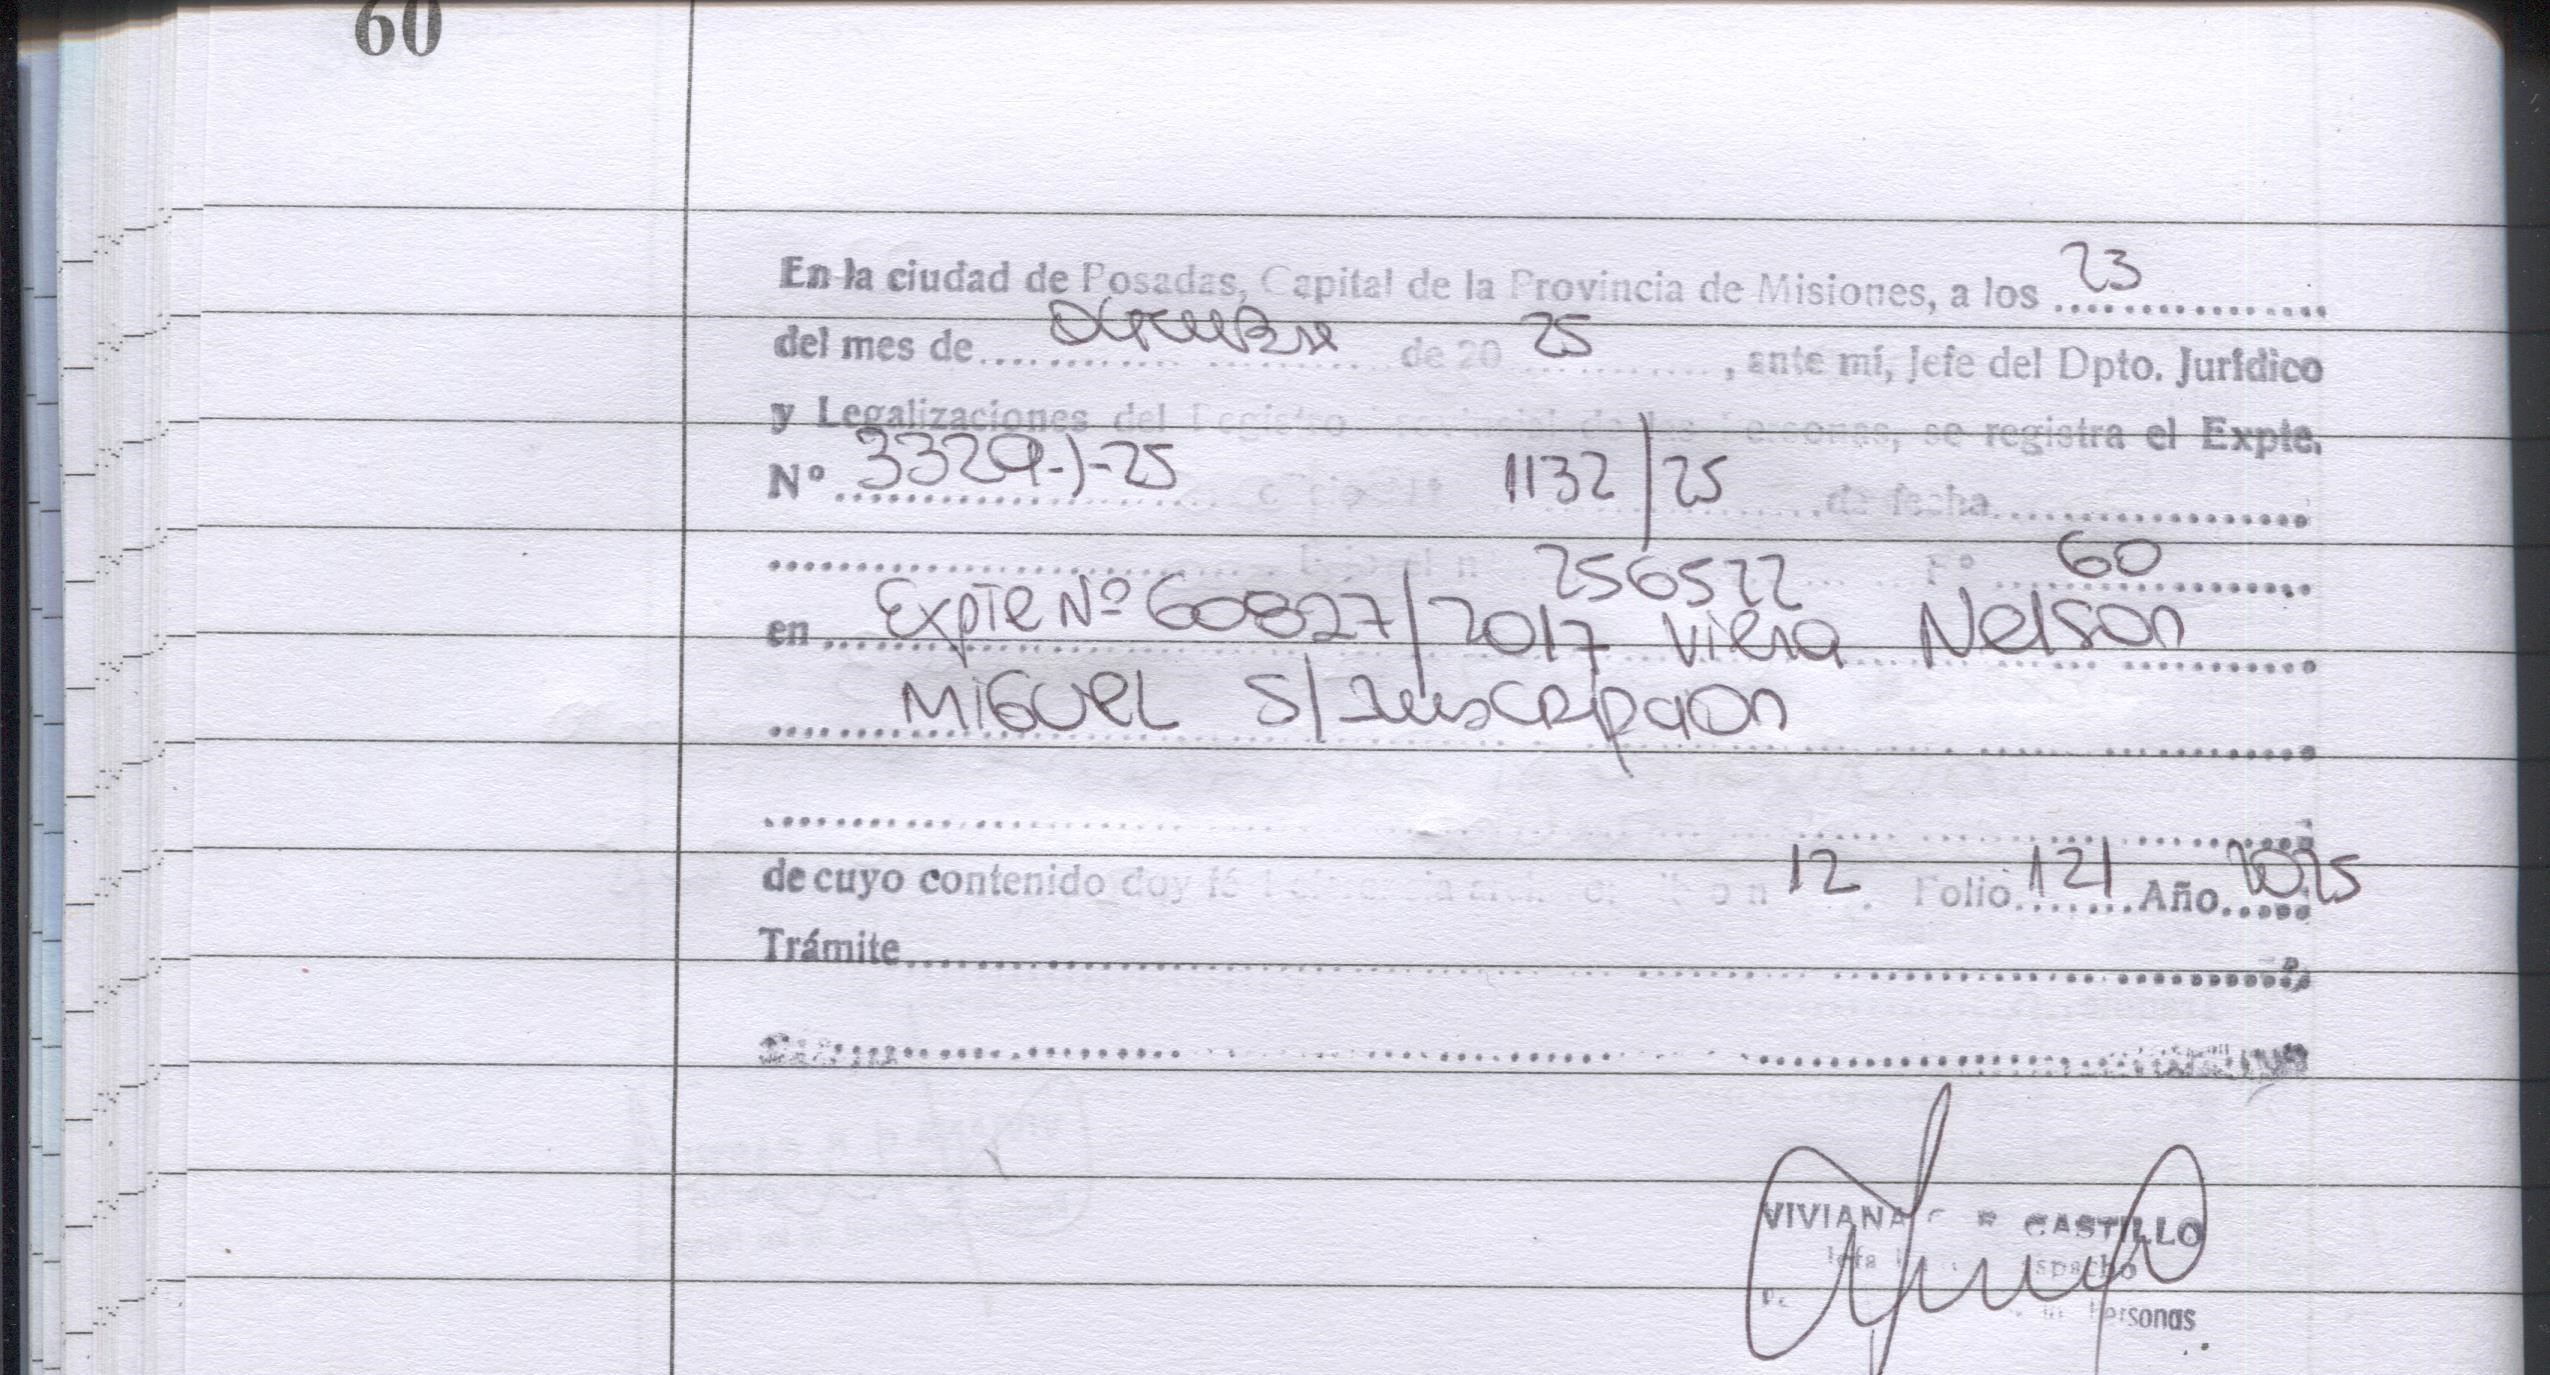 60
En la ciudad de Posadas, Capital de la Provincia de Misiones, a los 23
del mes de Diciembre de 20 25, ante mí, Jefe del Dpto. Jurídico
y Legalizaciones del Registro Provincial de las Personas, se registra el Expte.
Nº 3329-J-25 oficio Nº 1132/25 de fecha
256522 Fº 60
en Expte Nº 60827/2017 Viera Nelson
Miguel S/Inscripcion
de cuyo contenido doy fé 12 Folio 121 Año 2025
Trámite
VIVIANA CASTILLO
Jefa Despacho
Personas